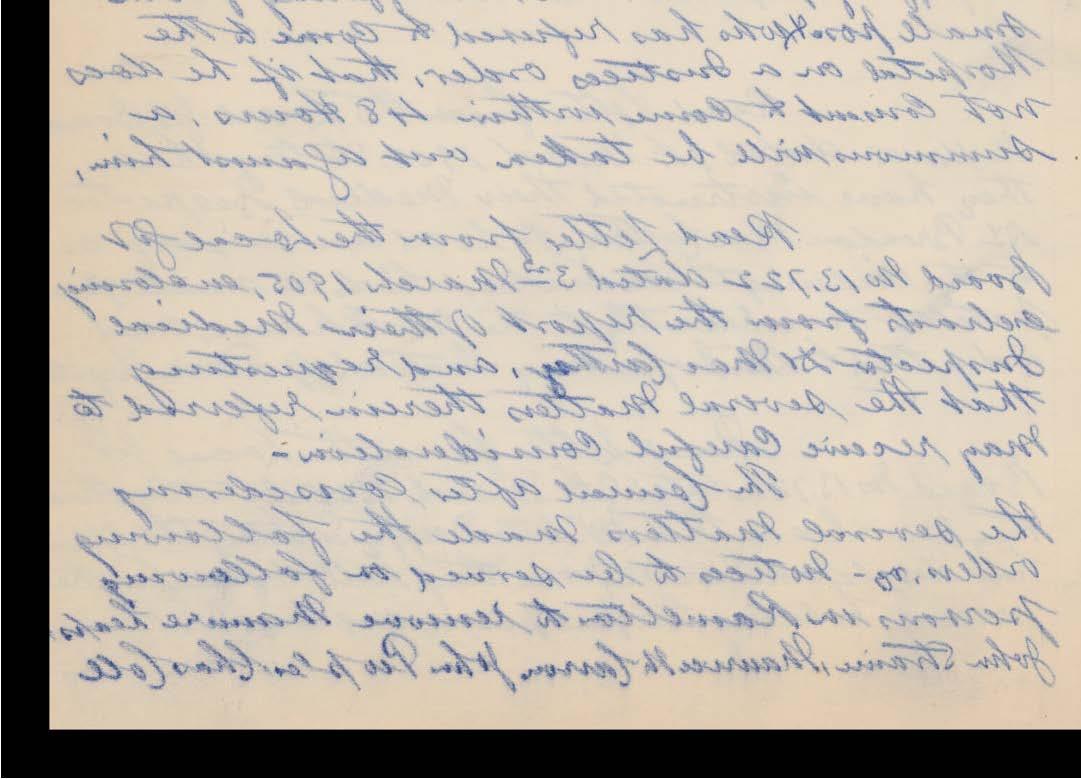 small pox who has refused to come to the
Hospital on a Justices order, that if he does
not consent to come within 48 Hours, a
summons will be taken out against him,
Read Letter from the Local Gov
Board No 13.722 dated 3rd March 1905, enclosing
extracts from the report of their Medical
Inspector Dr Mac Carthy, and requesting
that the several matters therein referred to
may receive careful consideration.-
The Council after considering
the several matters made the following
orders. - Notices to be served on following
persons in Ramelton to remove manure heaps,
John Strain, John Peoples, Chas Coll